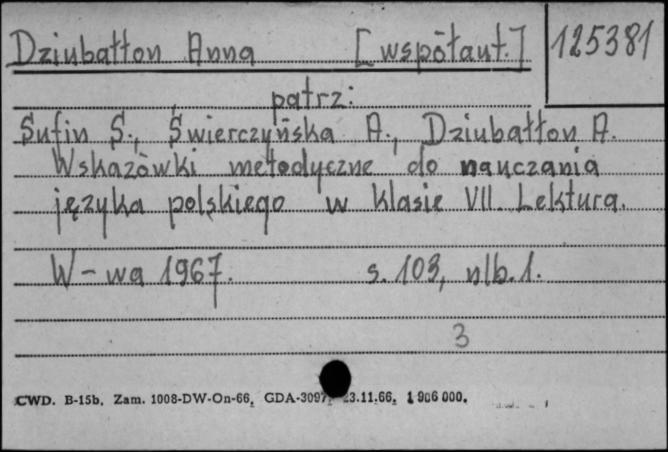 Dziubałton Anna [współaut.] 125381
patrz:
Sufin S., Świerczyńska A., Dziubałton A.
Wskazówki metodyczne do nauczania
języka polskiego w klasie VII. Lektura.
W-wa 1967. s. 103, nlb. 1.
3
CWD. B-15b. Zam. 1008-DW-On-66. GDA-3097. 23.11.66. 1 906 000.